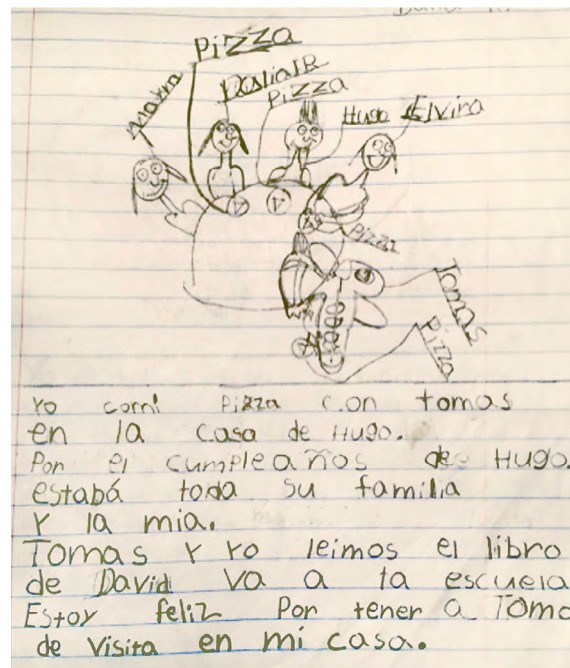 Pizza
Pizza
Hugo Elvira
Pizza
Tomas
Pizza
Yo comi Pizza con tomas
en la casa de Hugo.
Por el cumpleaños de Hugo.
estabá toda su familia
Y la mia.
Tomas Y Yo leimos el libro
de David Va a la escuela
Estoy feliz Por tener a Toma
de visita en mi casa.